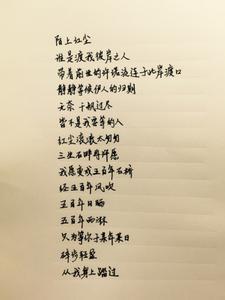 陌上红尘
谁是渡我彼岸之人
带着前生的许诺流连于此岸渡口
静静等候伊人的归期
无奈 千帆过尽
皆不是我要等的人
红尘滚滚太匆匆
三生石畔再许愿
我愿变成五百年石桥
经五百年风吹
五百年日晒
五百年雨淋
只为等你于某年某日
碎步轻盈
从我身上踏过